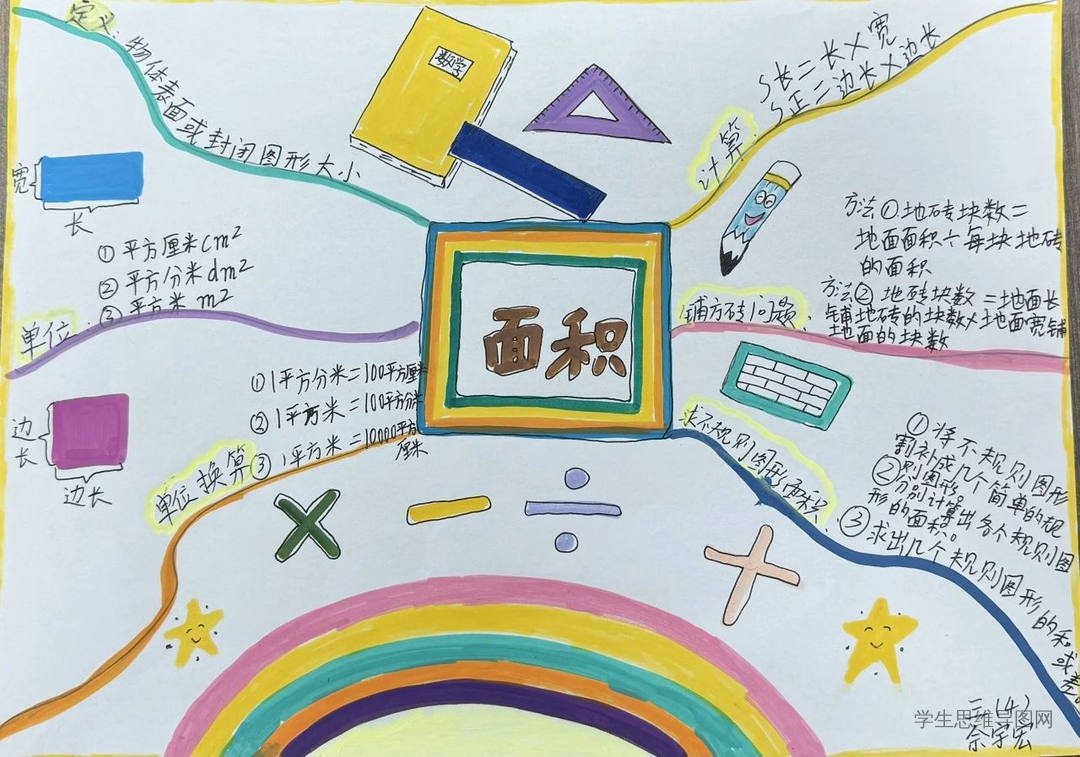 定义:物体表面或封闭图形大小
数学
S长=长×宽
S正=边长×边长
计算
宽
长
①平方厘米cm²
②平方分米dm²
③平方米 m²
单位:
面积
方法①地砖块数=
地面面积÷每块地砖
的面积
方法②地砖块数=地面长
铺地砖的块数×地面宽铺
地面的块数
铺方砖问题
①1平方分米=100平方厘米
②1平方米=100平方分米
③1平方米=10000平方
厘米
单位换算
边
长
边长
求不规则图形面积
①将不规则图形
割补成几个简单的规
则图形。
②分别计算出各个规则图
形的面积。
③求出几个规则图形的和
或差。
三(4)
学生思维导图网